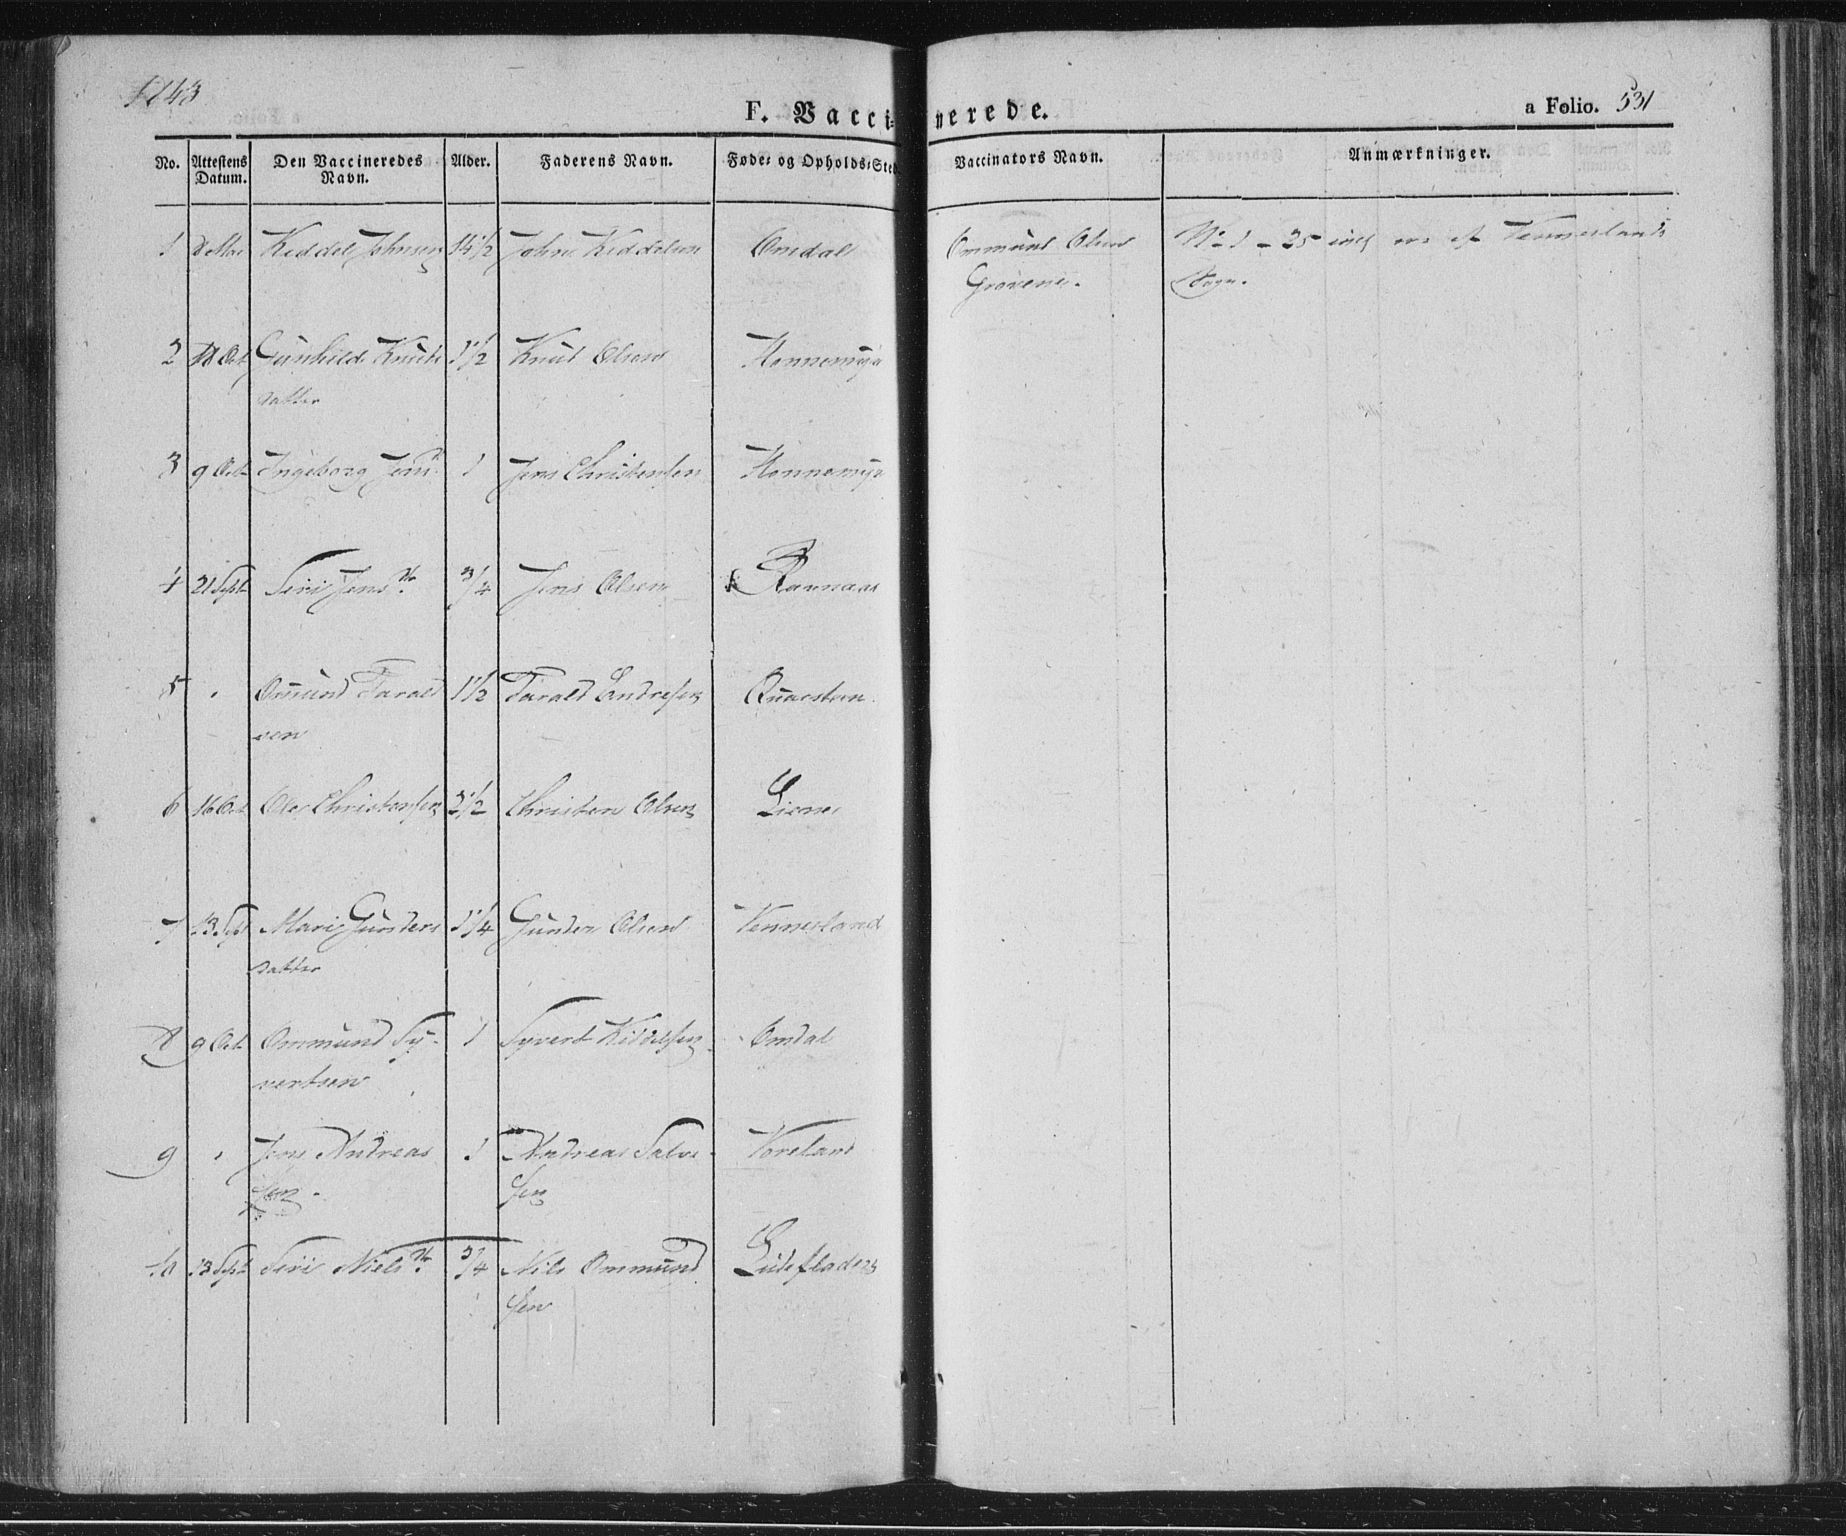 1843
F. Vaccinerede.
a Folio. 531
No. Attestens Datum. Den Vaccineredes Navn. Alder. Faderens Navn. Føde- og Opholds-Sted. Vaccinators Navn. Anmærkninger.
1 Keddel Johnsen 14 1/2 John Keddelsen Omdal Ommund Olsen No 1 - 25 incl ere af Vennerlands
Grovene. Sogn.
2 18 Oct Gunhild Knuts 1 1/2 Knut Olsen Honnemyr
datter
3 9 Oct Ingeborg Jens 1 Jens Christensen Honnemyr
4 21 Sept Siri Jens dr. 3/4 Jens Olsen Ravnaas
5 Omund Tarald 1 1/2 Tarald Endresen Quarsten
sen
6 16 Oct Ole Christensen 2 1/2 Christen Olsen Liene
7 13 Sept Mari Gunders 1 1/4 Gunder Olsen Vennesland
datter
8 9 Oct Ommund Sy- 1 Syvert Kiddelsen Omdal
vertsen
9 Jens Andreas 1 Andreas Salve Voreland
sen sen
10 13 Sept Siri Niels dr. 3/4 Nils Ommund Lidefladen
sen